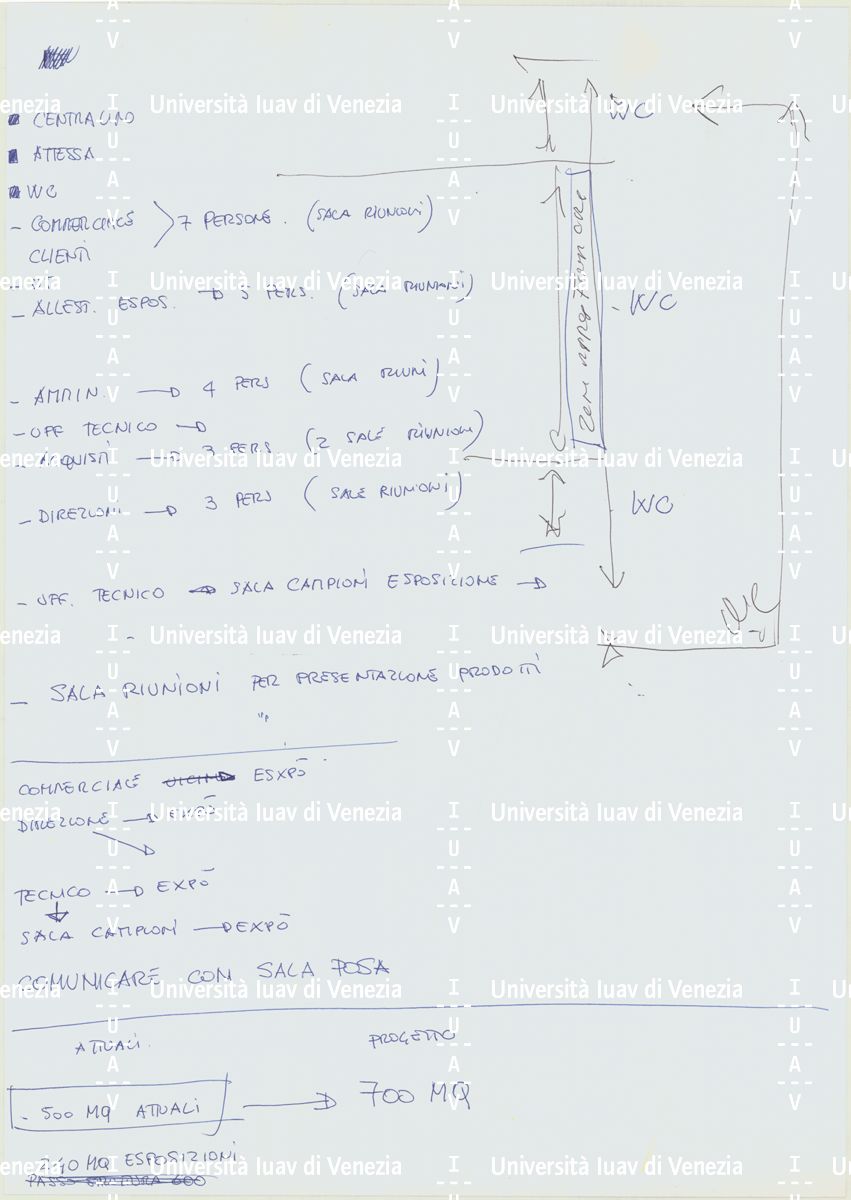 CENTRALINO
ATTESSA
WC
- COMMERCIALE
CLIENTI
7 PERSONE. (SALA RIUNIONI)
- ALLEST. ESPOS. → 5 PERS. (SALA RIUNIONI)
- AMMIN. → 4 PERS (SALA RIUNI)
- OFF TECNICO →
- ACQUISTI → 3 PERS (2 SALE RIUNIONI)
- DIREZIONI → 3 PERS (SALE RIUNIONI)
- OFF. TECNICO → SALA CAMPIONI ESPOSIZIONE →
- SALA RIUNIONI PER PRESENTAZIONE PRODOTTI
COMMERCIALE VICINO ESXPÒ
DIREZIONE → EXPÒ
TECNICO → EXPÒ
SALA CAMPIONI → EXPÒ
COMUNICARE CON SALA POSA
ATTUALI. PROGETTO
- 500 MQ ATTUALI → 700 MQ
240 MQ ESPOSIZIONI
WC
- WC
WC
Università Iuav di Venezia
I
U
A
V